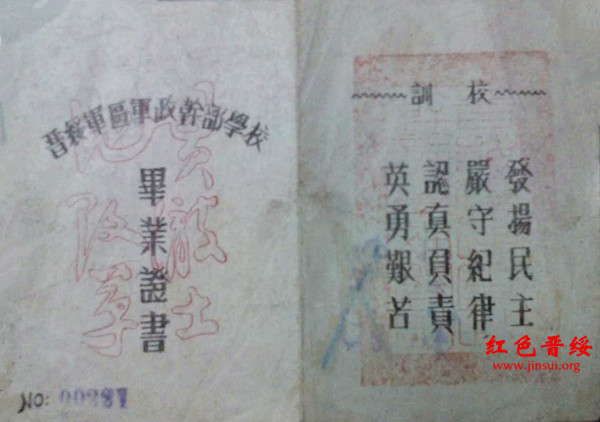 晋綏軍區軍政幹部學校
畢業證書
NO: 00287
校訓
發揚民主
嚴守紀律
認真負責
英勇艱苦
红色晋绥
www.jinsui.org